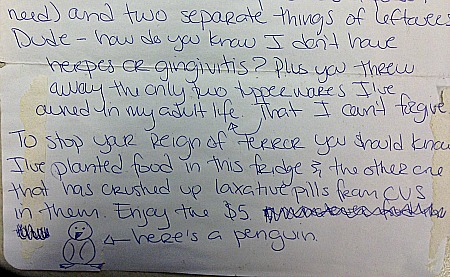 need) and two separate things of leftovers
Dude - how do you know I don't have
herpes or gingivitis? Plus you threw
away the only two tupperwares I've
owned in my adult life. That I can't forgive
To stop your Reign of Terror you should know
I've planted food in this fridge & the other one
that has crushed up laxative pills from CVS
in them. Enjoy the $5
here's a penguin.